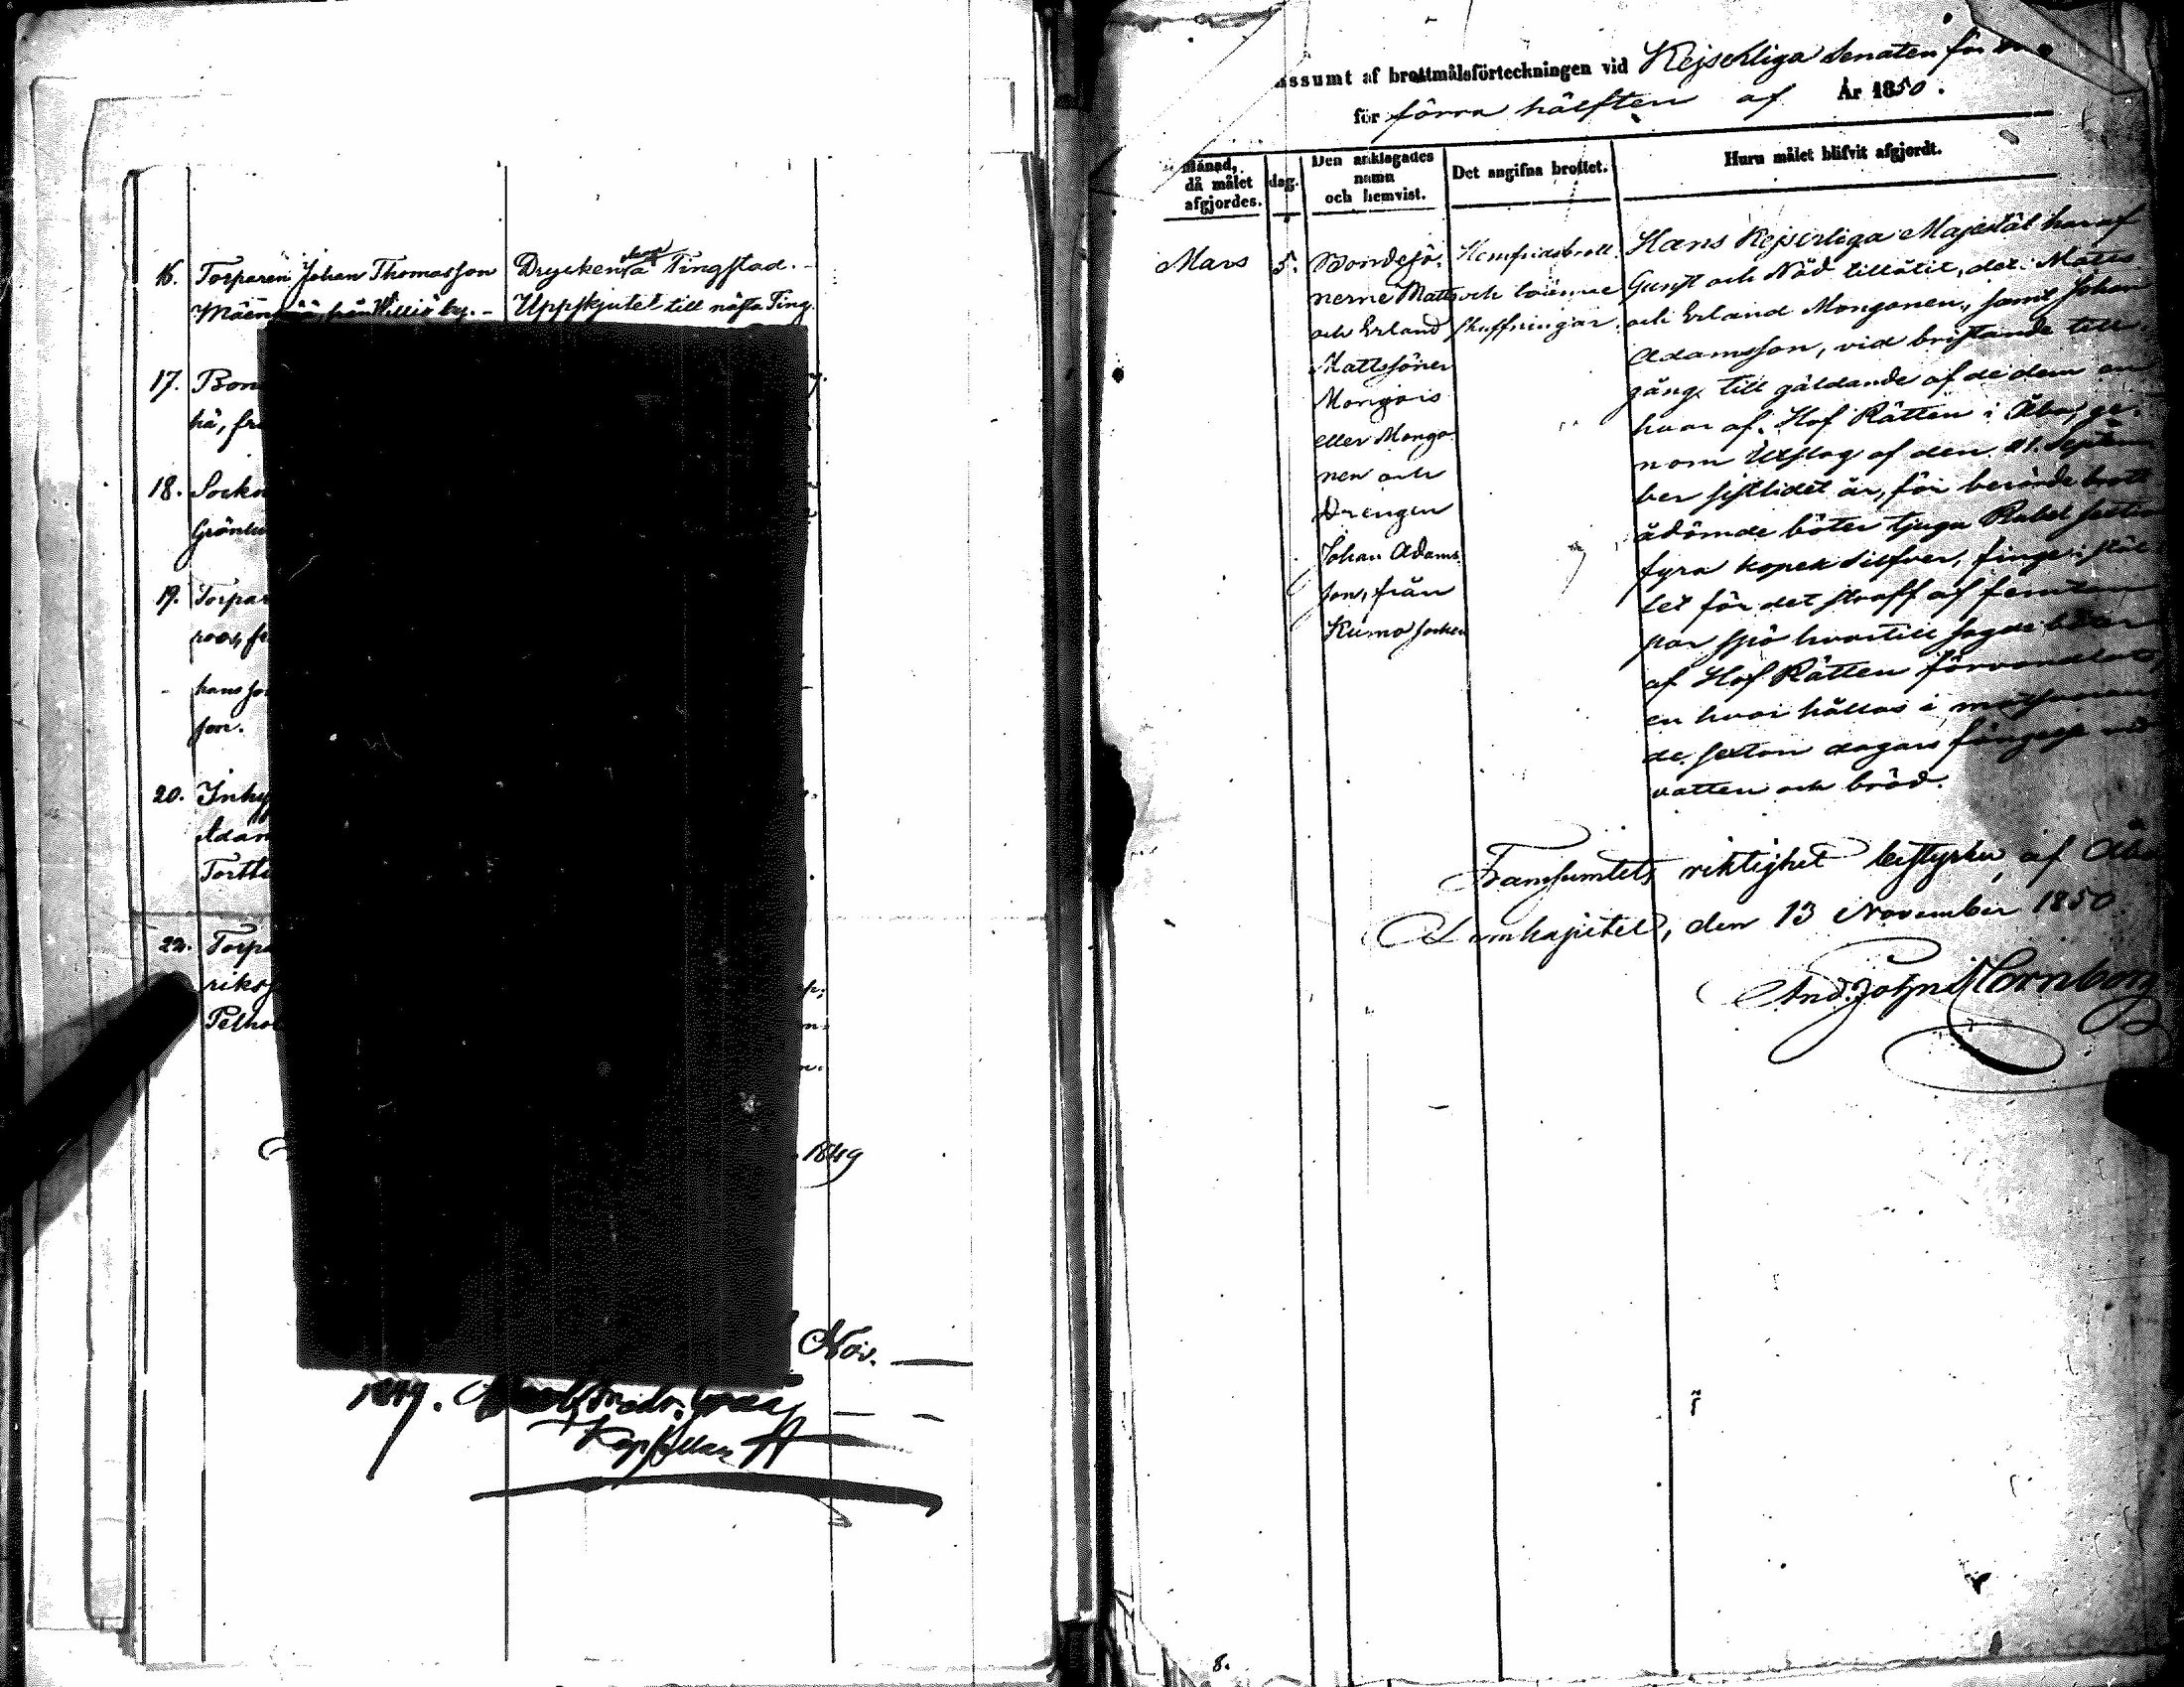 16. Torparen Johan Thomasson Dryckenskap å Tingstad.
från Willjö by. Uppskjutet till nästa Ting.
17. Bon
hä, fr
18. Sockn
Grönlu
19. Torpar
roos, fr
hans so
son.
20. Inhy
Adam
Tortti
22. Torpa
riks
Pelho
1849
Nov.
1849.
Kapellan
ssumt af brottmålsförteckningen vid Kejserliga Senaten för
för förra hälften af År 1850.
Månad, då målet afgjordes.
dag.
Den anklagades namn och hemvist.
Det angifna brottet.
Huru målet blifvit afgjordt.
Mars
5.
Bondesö-
nerne Matts
och Erland
Mattssöner
Mongois
eller Mongo-
nen och
Drengen
Johan Adams-
son, från
Kumo socken
Hemfridsbrott
och
skuffningar.
Hans Kejserliga Majestät har af
Gunst och Nåd tillåtit, det Matts
och Erland Mongonen, samt Johan
Adamsson, vid bristande till-
gång till gäldande af de dem en
hvar af Hof Rätten i Åbo, ge-
nom Utslag af den 21. Septem
ber sistlidet år, för berörde brott
ådömde böter tjugu Rubel sextio
fyra kopek Silfver, finge i stäl-
let för det straff af femton
par spö hvartill sagde böter
af Hof Rätten förvandlats,
en hvar hållas i motsvaran
de sexton dagars fängelse vid
vatten och bröd.
Transumtets riktighet bestyrker af Åbo
Domkapitel, den 13 November 1850.
And. Johan Hornborg
8.